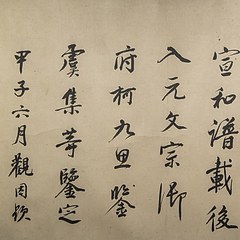 宣和譜載後
入元文宗御
府柯九思鑒
虞集等鑒定
甲子六月觀因題